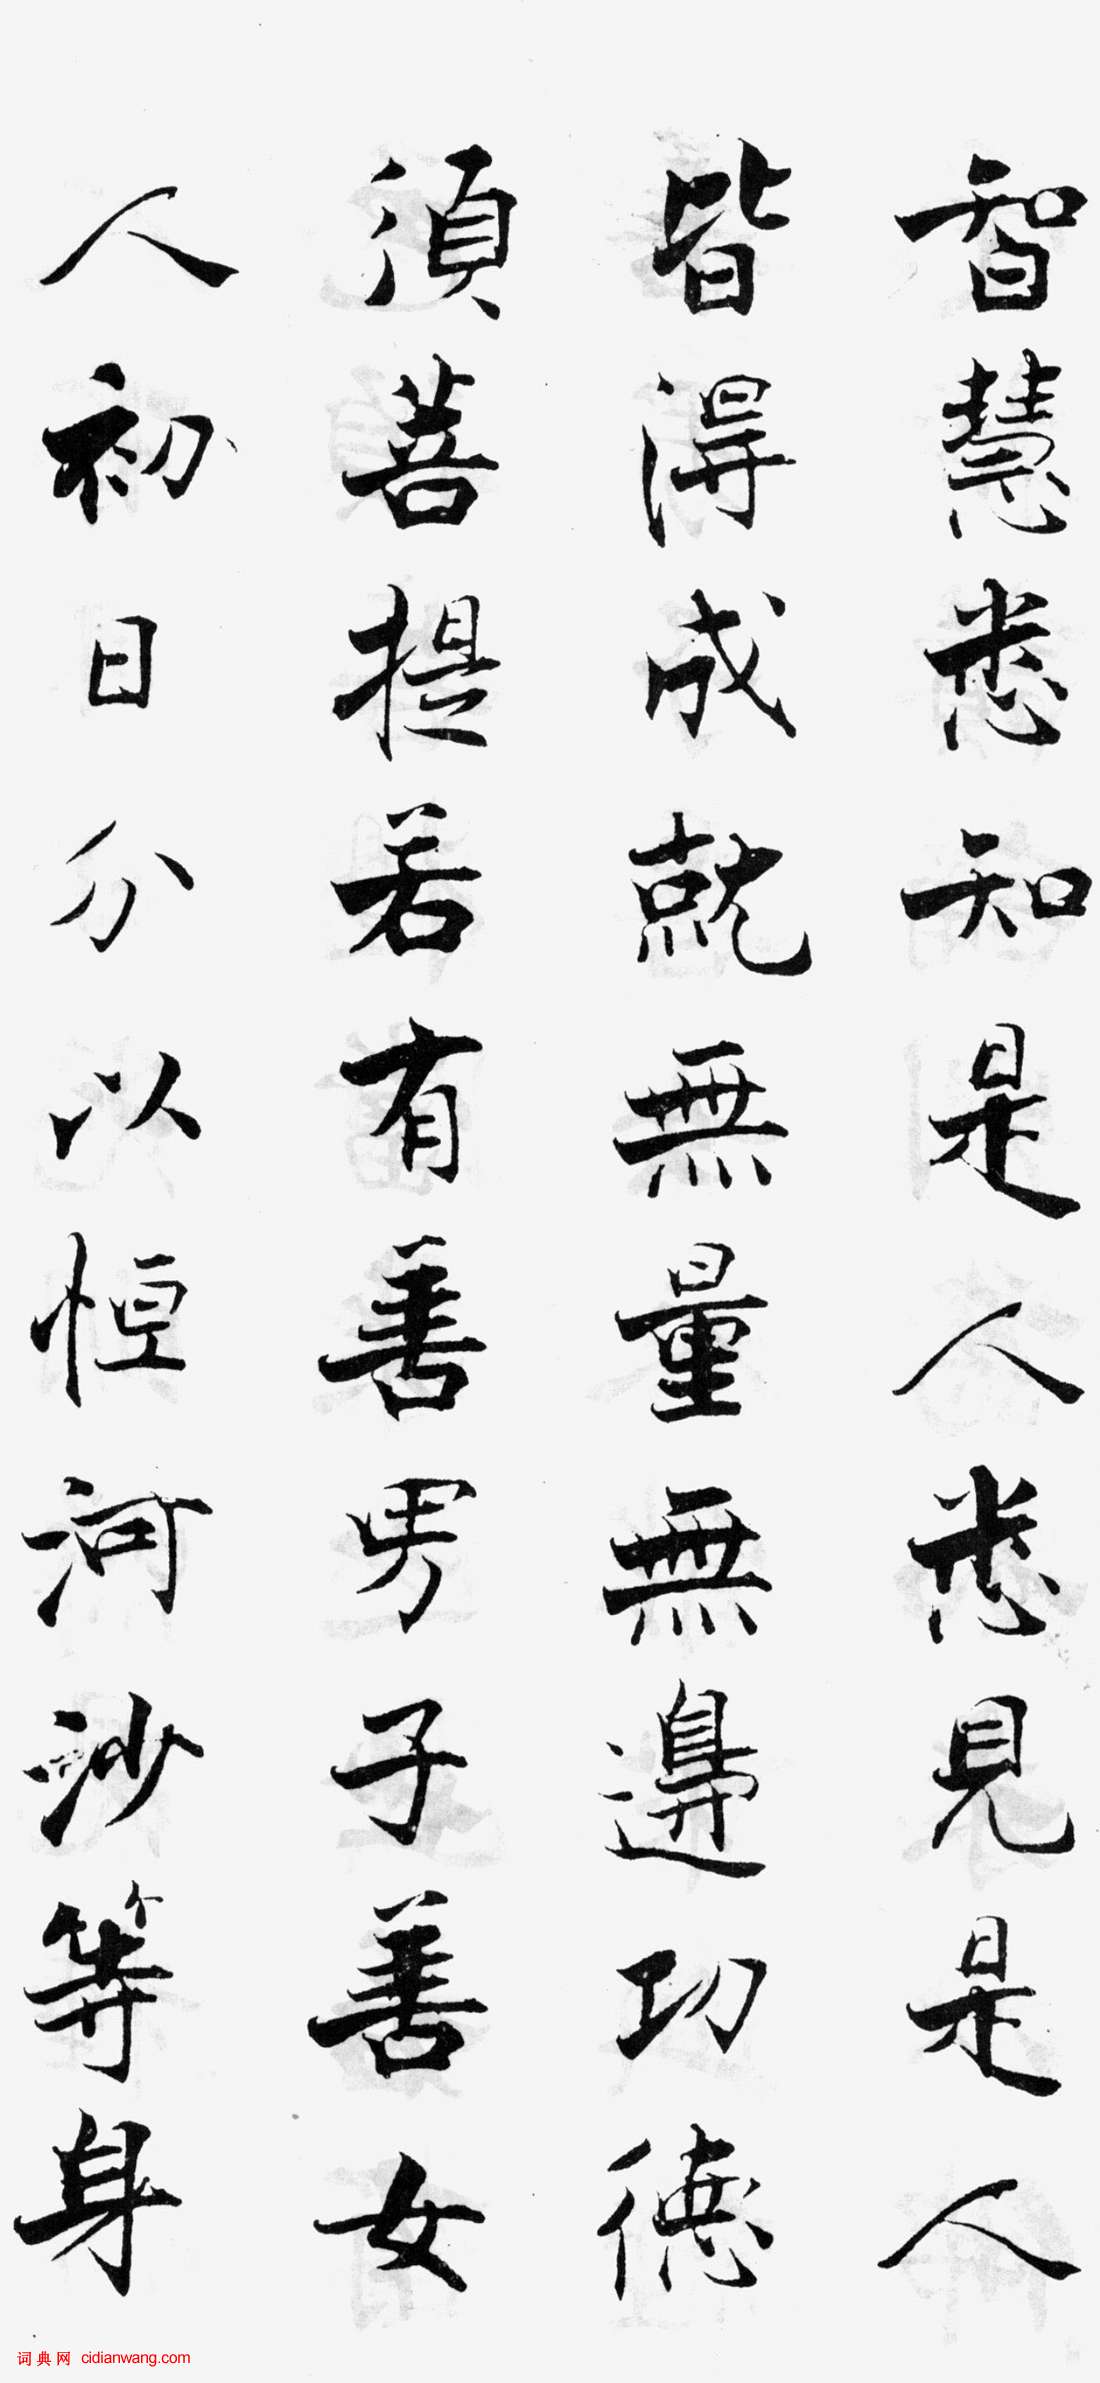 智慧悉知是人悉見是人
皆得成就無量無邊功德
須菩提若有善男子善女
人初日分以恒河沙等身
词典网 cidianwang.com